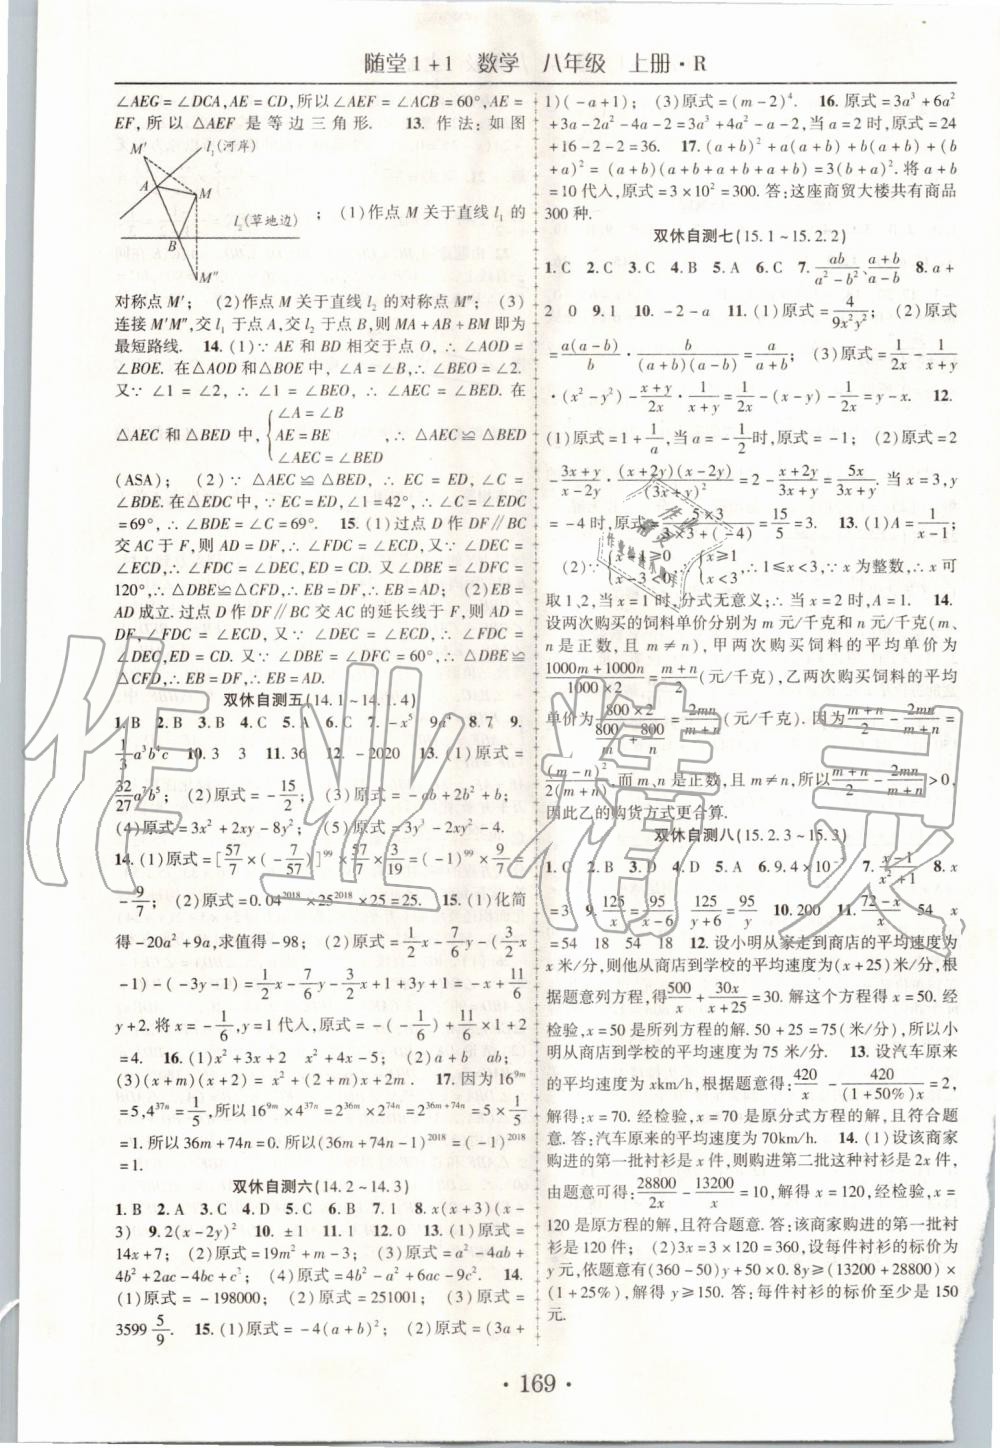 随堂1+1 数学 八年级 上册·R
∠AEG=∠DCA,AE=CD,所以∠AEF=∠ACB=60°,AE=
EF,所以△AEF 是等边三角形. 13. 作法:如图
M′
l₁(河岸)
A
M
l₂(草地边)
B
M″
;(1)作点 M 关于直线 l₁ 的
对称点 M′; (2)作点 M 关于直线 l₂ 的对称点 M″; (3)
连接 M′M″,交 l₁ 于点 A,交 l₂ 于点 B,则 MA+AB+BM 即为
最短路线. 14. (1)∵ AE 和 BD 相交于点 O,∴ ∠AOD=
∠BOE. 在△AOD 和△BOE 中,∠A=∠B,∴ ∠BEO=∠2.
又∵ ∠1=∠2,∴ ∠1=∠BEO,∴ ∠AEC=∠BED. 在
△AEC 和△BED 中,{∠A=∠B AE=BE ∠AEC=∠BED ,∴ △AEC≌△BED
(ASA); (2)∵ △AEC≌△BED,∴ EC=ED,∠C=
∠BDE. 在△EDC 中,∵ EC=ED,∠1=42°,∴ ∠C=∠EDC
=69°,∴ ∠BDE=∠C=69°. 15. (1)过点 D 作 DF∥BC
交 AC 于 F,则 AD=DF,∴ ∠FDC=∠ECD,又∵ ∠DEC=
∠ECD,∴ ∠FDC=∠DEC,ED=CD. 又∠DBE=∠DFC=
120°,∴ △DBE≌△CFD,∴ EB=DF,∴ EB=AD; (2)EB=
AD 成立. 过点 D 作 DF∥BC 交 AC 的延长线于 F,则 AD=
DF,∠FDC=∠ECD,又∵ ∠DEC=∠ECD,∴ ∠FDC=
∠DEC,ED=CD. 又∵ ∠DBE=∠DFC=60°,∴ △DBE≌
△CFD,∴ EB=DF,∴ EB=AD.
双休自测五(14.1~14.1.4)
1. B 2. B 3. B 4. C 5. A 6. C 7. -x⁵ 8. 7 9.
1/3 a³b⁴c 10. 3 3 11. 36 12. -2020 13. (1)原式=
32/27 a⁷b⁵; (2)原式=-15/2; (3)原式=-ab+2b²+b;
(4)原式=3x²+2xy-8y²; (5)原式=3y³-2xy²-4.
14. (1)原式=[57/7×(-7/57)]⁹⁹×57/7×3/19=(-1)⁹⁹×9/7=
-9/7; (2)原式=0.04²⁰¹⁸×25²⁰¹⁸×25=25. 15. (1)化简
得-20a²+9a,求值得-98; (2)原式=1/2x-7/6y-(3/2x
-1)-(-3y-1)=1/2x-7/6y-3/2x+1+3y+1=-x+11/6
y+2. 将 x=-1/6,y=1 代入,原式=-(-1/6)+11/6×1+2
=4. 16. (1)x²+3x+2 x²+4x-5; (2)a+b ab;
(3)(x+m)(x+n)=x²+(m+n)x+mn. 17. 因为 16⁹ᵐ
=5,4³⁷ⁿ=1/5,所以 16⁹ᵐ×4³⁷ⁿ=2³⁶ᵐ×2⁷⁴ⁿ=2³⁶ᵐ⁺⁷⁴ⁿ=5×1/5
=1. 所以 36m+74n=0. 所以(36m+74n-1)²⁰¹⁸=(-1)²⁰¹⁸
=1.
双休自测六(14.2~14.3)
1. B 2. A 3. C 4. D 5. C 6. B 7. 1 8. x(x+3)(x-
3) 9. 2(x-2y)² 10. ±1 11. 1 12. 0 13. (1)原式=
14x+7; (2)原式=19m²+m-3; (3)原式=a²-4ab+
4b²+2ac-4bc+c²; (4)原式=4b²-a²+6ac-9c². 14.
(1)原式=-198000; (2)原式=251001; (3)原式=
3599 5/9. 15. (1)原式=-4(a+b)²; (2)原式=(3a+
1)(-a+1); (3)原式=(m-2)⁴. 16. 原式=3a³+6a²
+3a-2a²-4a-2=3a³+4a²-a-2,当 a=2 时,原式=24
+16-2-2=36. 17. (a+b)²+a(a+b)+b(a+b)+(b
+a)²=(a+b)(a+b+a+b+a+b)=3(b+a)². 将 a+b
=10 代入,原式=3×10²=300. 答:这座商贸大楼共有商品
300 种.
双休自测七(15.1~15.2.2)
1. C 2. C 3. C 4. B 5. A 6. C 7. ab/(a²-b²)、(a+b)/(a-b) 8. a+
2 0 9. 1 10. -2-a 11. (1)原式=4/(9x²y²); (2)原式
=a(a-b)/b·b/((a+b)(a-b))=a/(a+b); (3)原式=1/2x-1/(x+y)
·(x²-y²)-(x+y)/2x·1/(x+y)=1/2x-(x-y)-1/2x=y-x. 12.
(1)原式=1+1/a,当 a=-1/2时,原式=-1; (2)原式=2
-(3x+y)/(x-2y)·(x+2y)(x-2y)/(3x+y)²=2-(x+2y)/(3x+y)=5x/(3x+y). 当 x=3,y
=-4 时,原式=5×3/(3×3+(-4))=15/5=3. 13. (1)A=1/(x-1);
(2)∵{x-1≥0 x-3<0,∴{x≥1 x<3,∴1≤x<3,∵ x 为整数,∴ x 可
取 1、2,当 x=1 时,分式无意义;∴ 当 x=2 时,A=1. 14.
设两次购买的饲料单价分别为 m 元/千克和 n 元/千克(m、
n 是正数,且 m≠n),甲两次购买饲料的平均单价为
(1000m+1000n)/(1000×2)=(m+n)/2(元/千克),乙两次购买饲料的平均
单价为(800×2)/(800/m+800/n)=2mn/(m+n)(元/千克). 因为(m+n)/2-2mn/(m+n)=
(m-n)²/2(m+n),而 m、n 是正数,且 m≠n,所以(m+n)/2-2mn/(m+n)>0,
因此乙的购货方式更合算.
双休自测八(15.2.3~15.3)
1. C 2. B 3. D 4. D 5. A 6. 9.4×10 7. (x-1)/(x²+1) 8. x
=3 9. 125/x=95/(x-6) 125/(y+6)=95/y 10. 200 11. (72-x)/x 54 x
=54 18 54 18 12. 设小明从家走到商店的平均速度为
x 米/分,则他从商店到学校的平均速度为(x+25)米/分,根
据题意列方程,得500/x+30x/(x+25)=30. 解这个方程得 x=50. 经
检验,x=50 是所列方程的解. 50+25=75(米/分),所以小
明从商店到学校的平均速度为 75 米/分. 13. 设汽车原来
的平均速度为 xkm/h,根据题意得:420/x-420/((1+50%)x)=2,
解得:x=70. 经检验,x=70 是原分式方程的解,且符合题
意. 答:汽车原来的平均速度为 70km/h. 14. (1)设该商家
购进的第一批衬衫是 x 件,则购进第二批这种衬衫是 2x 件,
由题意可得:28800/2x-13200/x=10,解得 x=120,经检验,x=
120 是原方程的解,且符合题意. 答:该商家购进的第一批衬
衫是 120 件; (2)3x=3×120=360,设每件衬衫的标价为
y 元,依题意有(360-50)y+50×0.8y≥(13200+28800)×
(1+25%),解得 y≥150. 答:每件衬衫的标价至少是 150
元.
·169·
作业精灵